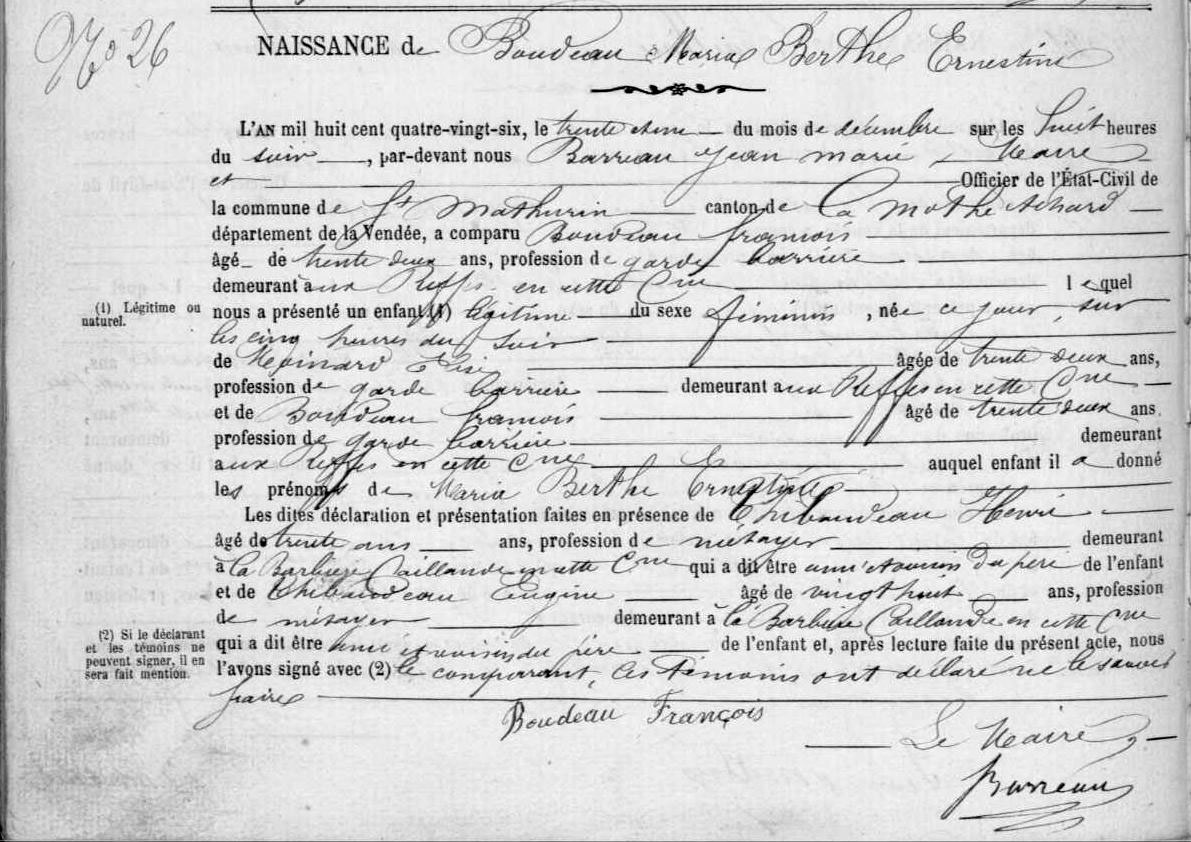 No 26
NAISSANCE de Boudeau Maria Berthe Ernestine
L'AN mil huit cent quatre-vingt-six, le trente et un du mois de décembre sur les huit heures
du soir, par-devant nous Barreau Jean Marie, Maire
et Officier de l'État-Civil de
la commune de St Mathurin canton de La Mothe Achard
département de la Vendée, a comparu Boudeau françois
âgé de trente deux ans, profession de garde barrière
demeurant aux Reffes en cette Cne lequel
(1) Légitime ou
naturel.
nous a présenté un enfant (1) légitime du sexe féminin, née ce jour, sur
les cinq heures du soir
de Moinard Elise âgée de trente deux ans,
profession de garde barrière demeurant aux Reffes en cette Cne
et de Boudeau françois âgé de trente deux ans
profession de garde barrière demeurant
aux Reffes en cette Cne auquel enfant il a donné
les prénoms de Maria Berthe Ernestine
Les dites déclaration et présentation faites en présence de Thibaudeau Henri
âgé de trente ans ans, profession de métayer demeurant
à la Barbière Caillaude en cette Cne qui a dit être ami et voisin du père de l'enfant
et de Thibaudeau Eugène âgé de vingt huit ans, profession
de métayer demeurant à la Barbière Caillaude en cette Cne
(2) Si le déclarant
et les témoins ne
peuvent signer, il en
sera fait mention.
qui a dit être ami et voisin du père de l'enfant et, après lecture faite du présent acte, nous
l'avons signé avec (2) le comparant, les témoins ont déclaré ne le savoir
faire
Boudeau François
Le Maire
Barreau